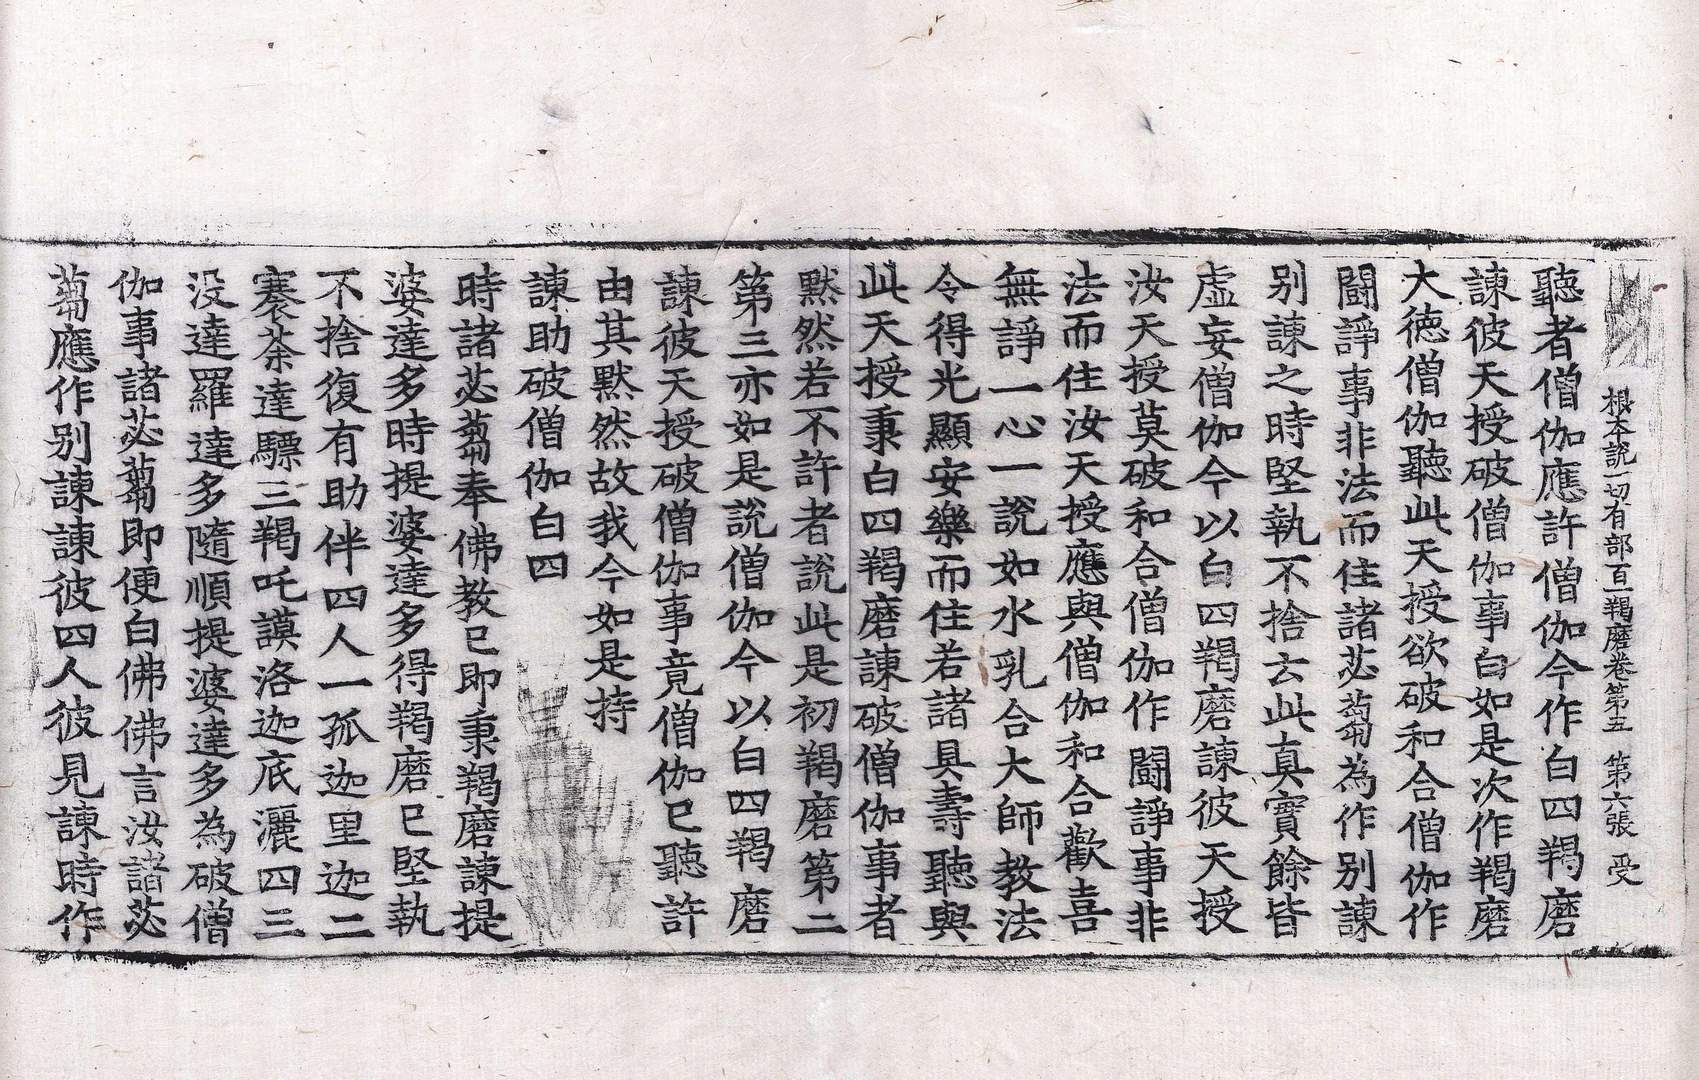 根本說一切有部百一羯磨卷第五　第六張　受
聽者僧伽應許僧伽今作白四羯磨
諫彼天授破僧伽事白如是次作羯磨
大德僧伽聽此天授欲破和合僧伽作
鬪諍事非法而住諸苾蒭為作別諫
別諫之時堅執不捨云此真實餘皆
虛妄僧伽今以白四羯磨諫彼天授
汝天授莫破和合僧伽作鬪諍事非
法而住汝天授應與僧伽和合歡喜
無諍一心一說如水乳合大師教法
令得光顯安樂而住若諸具壽聽與
此天授秉白四羯磨諫破僧伽事者
默然若不許者說此是初羯磨第二
第三亦如是說僧伽今以白四羯磨
諫彼天授破僧伽事竟僧伽已聽許
由其默然故我今如是持
諫助破僧伽白四
時諸苾蒭奉佛教已即秉羯磨諫提
婆達多時提婆達多得羯磨已堅執
不捨復有助伴四人一孤迦里迦二
褰荼達驃三羯吒謨洛迦底灑四三
没達羅達多隨順提婆達多為破僧
伽事諸苾蒭即便白佛佛言汝諸苾
蒭應作別諫諫彼四人彼見諫時作